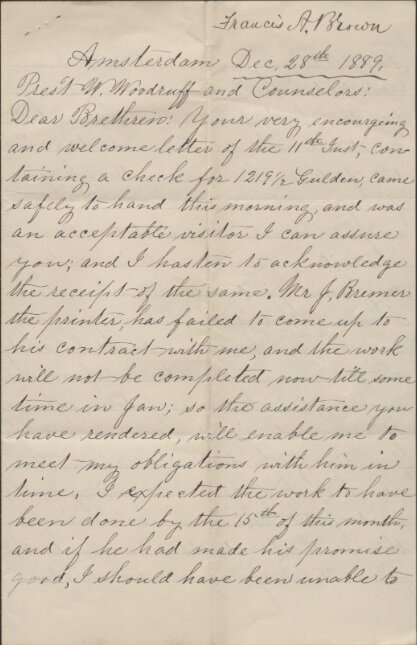 Francis A. Brown
Amsterdam Dec, 28th 1889,
Prest W. Woodruff and Counselors:
Dear Brethren: Your very encourgeing
and welcome letter of the 11th Inst, con-
taining a check for 1219 1/2 Gulden, came
safely to hand this morning, and was
an acceptable visitor I can assure
you; and I hasten to acknowledge
the receipt of the same. Mr J, Bremer
the printer, has failed to come up to
his contract with me, and the work
will not be completed now till some
time in Jan; so the assistance you
have rendered, will enable me to
meet my obligations with him in
time. I expected the work to have
been done by the 15th of this month,
and if he had made his promise
good, I should have been unable to